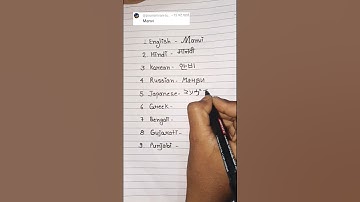 Manvi
1. English - Manvi
2. Hindi - मानवी
3. Korean - 만비
4. Russian - Манви
5. Japanese - マンヴ
6. Greek -
7. Bengali -
8. Gujarati -
9. Punjabi -